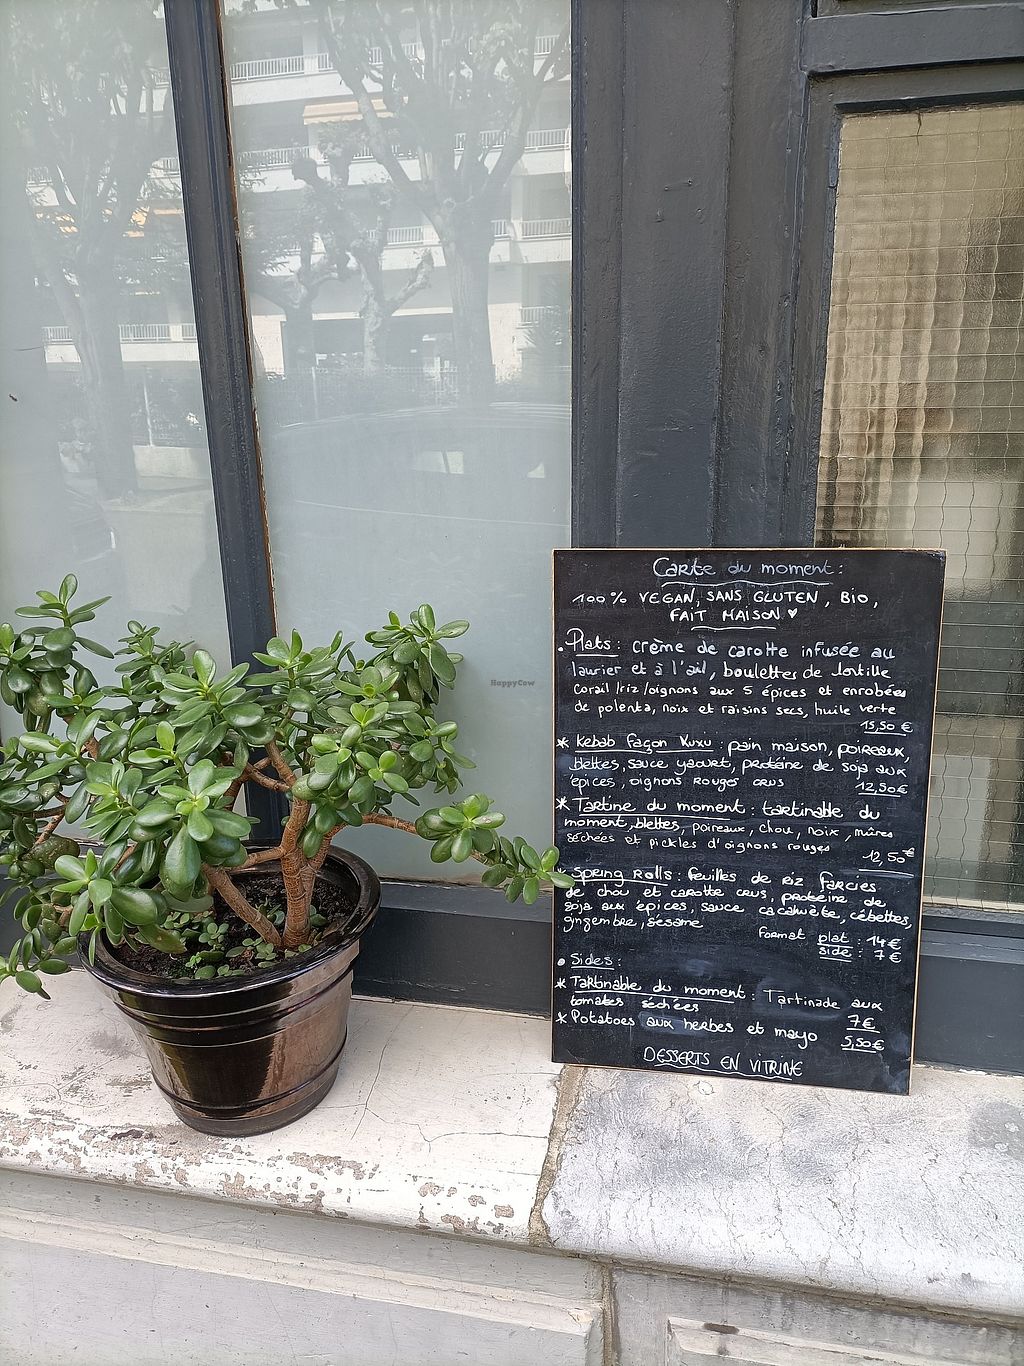 Carte du moment :
100% VEGAN, SANS GLUTEN, BIO,
FAIT MAISON ♥
• Plats : crème de carotte infusée au
laurier et à l'ail, boulettes de lentille
corail /riz /oignons aux 5 épices et enrobées
de polenta, noix et raisins secs, huile verte
15,50 €
* Kebab façon Kuxu : pain maison, poireaux,
blettes, sauce yaourt, protéine de soja aux
épices, oignons rouges crus
12,50€
* Tartine du moment : tartinable du
moment, blettes, poireaux, chou, noix, mûres
séchées et pickles d'oignons rouges
12,50€
* Spring Rolls : feuilles de riz farcies
de chou et carotte crus, protéine de
soja aux épices, sauce cacahuète, cébettes,
gingembre, sésame
Format plat : 14€
side : 7€
• Sides :
* Tartinable du moment : Tartinade aux
tomates séchées
7€
* Potatoes aux herbes et mayo
5,50€
DESSERTS EN VITRINE
HappyCow